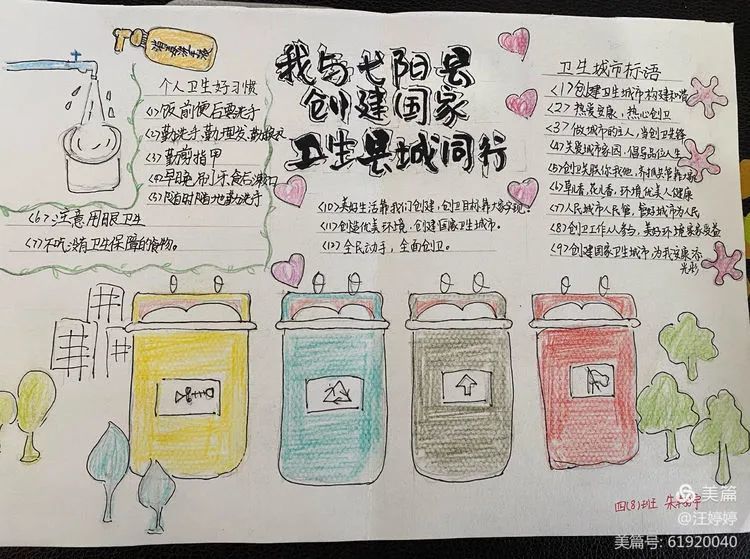 我与弋阳县
创建国家
卫生县城同行
个人卫生好习惯
<1>饭前便后要洗手
<2>勤洗手,勤理发,勤换衣
<3>勤剪指甲
<4>早晚刷牙,食后漱口
<5>随时随地勤洗手
<6>注意用眼卫生
<7>不吃没有卫生保障的食物。
卫生城市标语
<1>创建卫生城市构建和谐
<2>热爱安康,热心创卫
<3>做城市的主人,当创卫先锋
<4>关爱城市家园,倡导品位人生
<5>创卫关联你我他,齐抓共管靠大家
<6>草儿香,花儿香,环境优美人健康
<7>人民城市人民管,管好城市为人民
<8>创卫工作人人参与,美好环境家家受益
<9>创建国家卫生城市,为我安康添
光彩
<10>美好生活靠我们创建,创卫目标靠大家实现。
<11>创造优美环境,创建国家卫生城市。
<12>全民动手,全面创卫。
四(8)班 朱
美篇
@汪婷婷
美篇号: 61920040